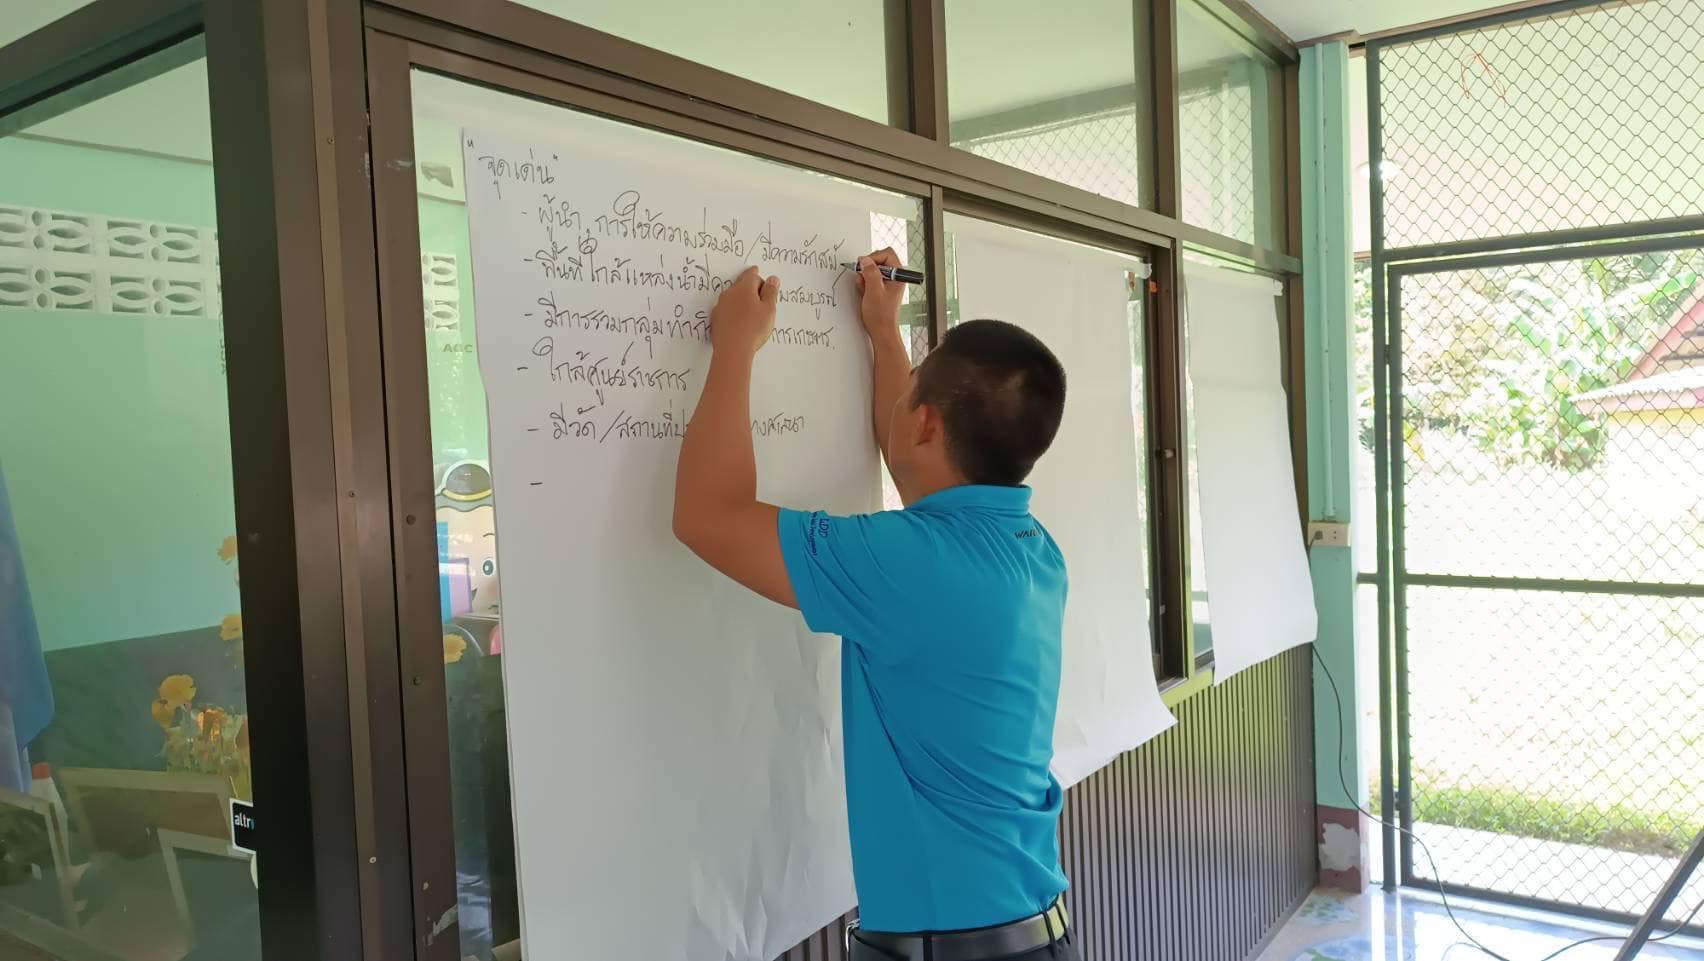 "จุดเด่น"
- ผู้นำ, การให้ความร่วมมือ / มีความรักสามั
- พื้นที่ใกล้แหล่งน้ำมีควา มสมบูรณ์
- มีการรวมกลุ่มทำกิ การเกษตร.
- ใกล้ศูนย์ราชการ
- มีวัด / สถานที่ป ทางศาสนา
-
LDD
altr